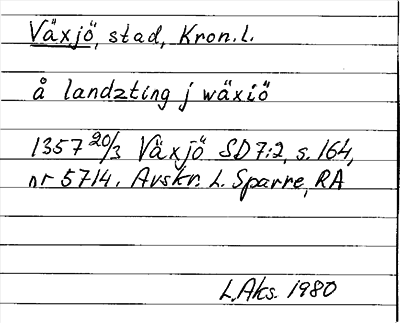 Växjö, stad, Kron.l.
å landzting j wäxiö
1357 20/3 Växjö SD7:2, s. 164,
nr 5714. Avskr. L. Sparre, RA
L.Aks. 1980